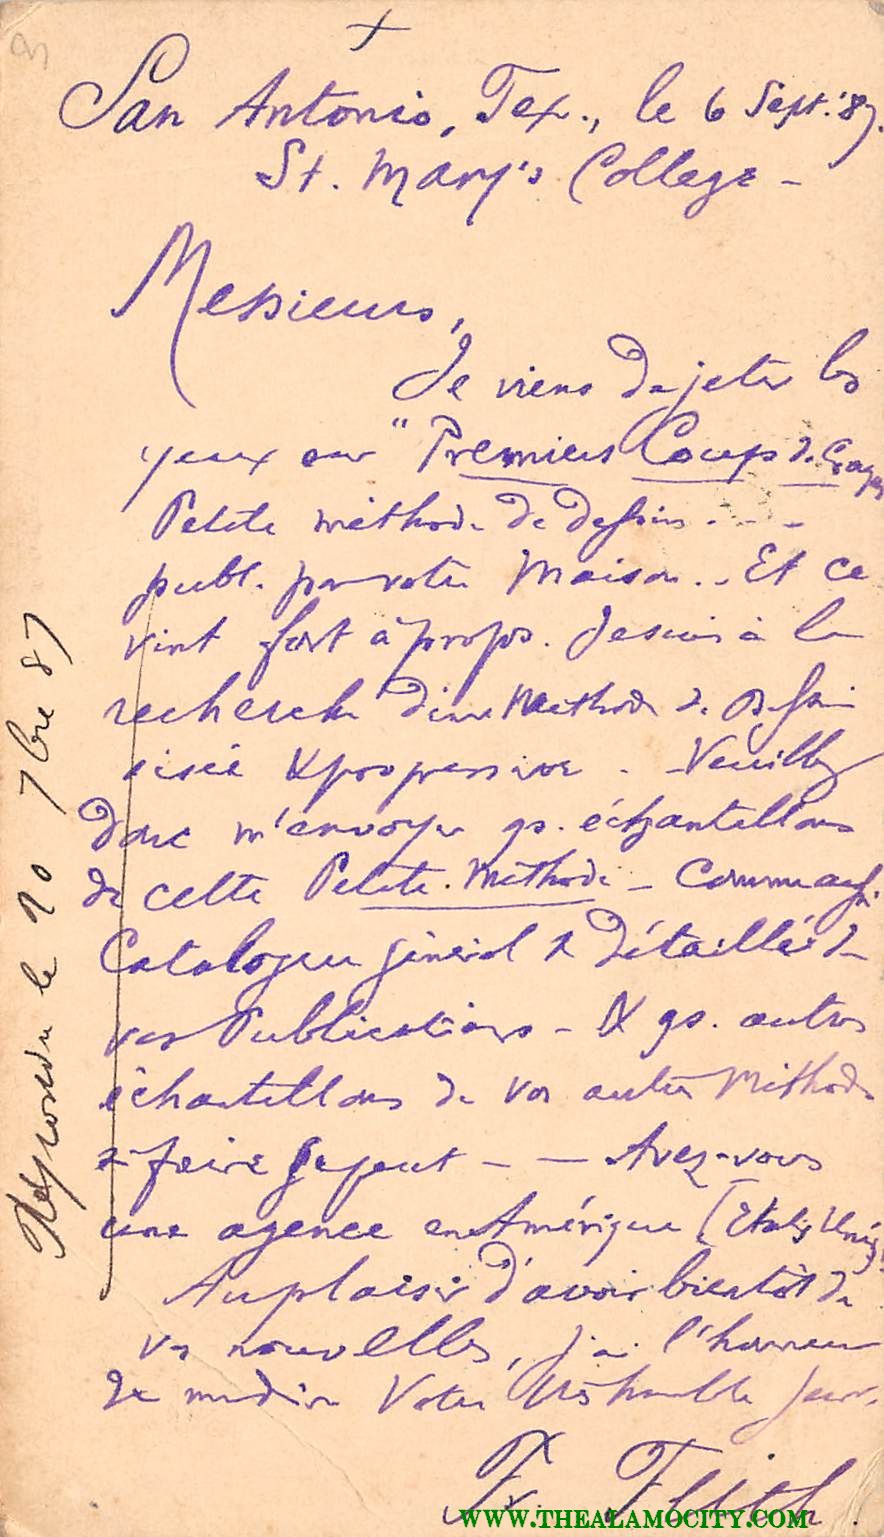 +
San Antonio, Tex., le 6 Sept. '87.
St. Mary's College -
Messieurs,
Je viens de jeter les
yeux sur "Premiers Coups de Crayon
Petite méthode de dessin - - -
publ. par votre Maison.. Et ce
vint fort à propos. Je suis à la
recherche d'une Méthode de dessin
aisée & progressive. - Veuillez
donc m'envoyer qs. échantillons
de cette Petite Méthode - Comme aussi
Catalogue général & détaillé de
vos Publications - & qs. autres
échantillons de vos autres Méthodes
si faire se peut - - Avez-vous
une agence en Amérique [Etats Unis]
Au plaisir d'avoir bientôt de
vos nouvelles, j'ai l'honneur
de me dire Votre très humble serv.
Répondu le 20 7bre 87
WWW.THEALAMOCITY.COM